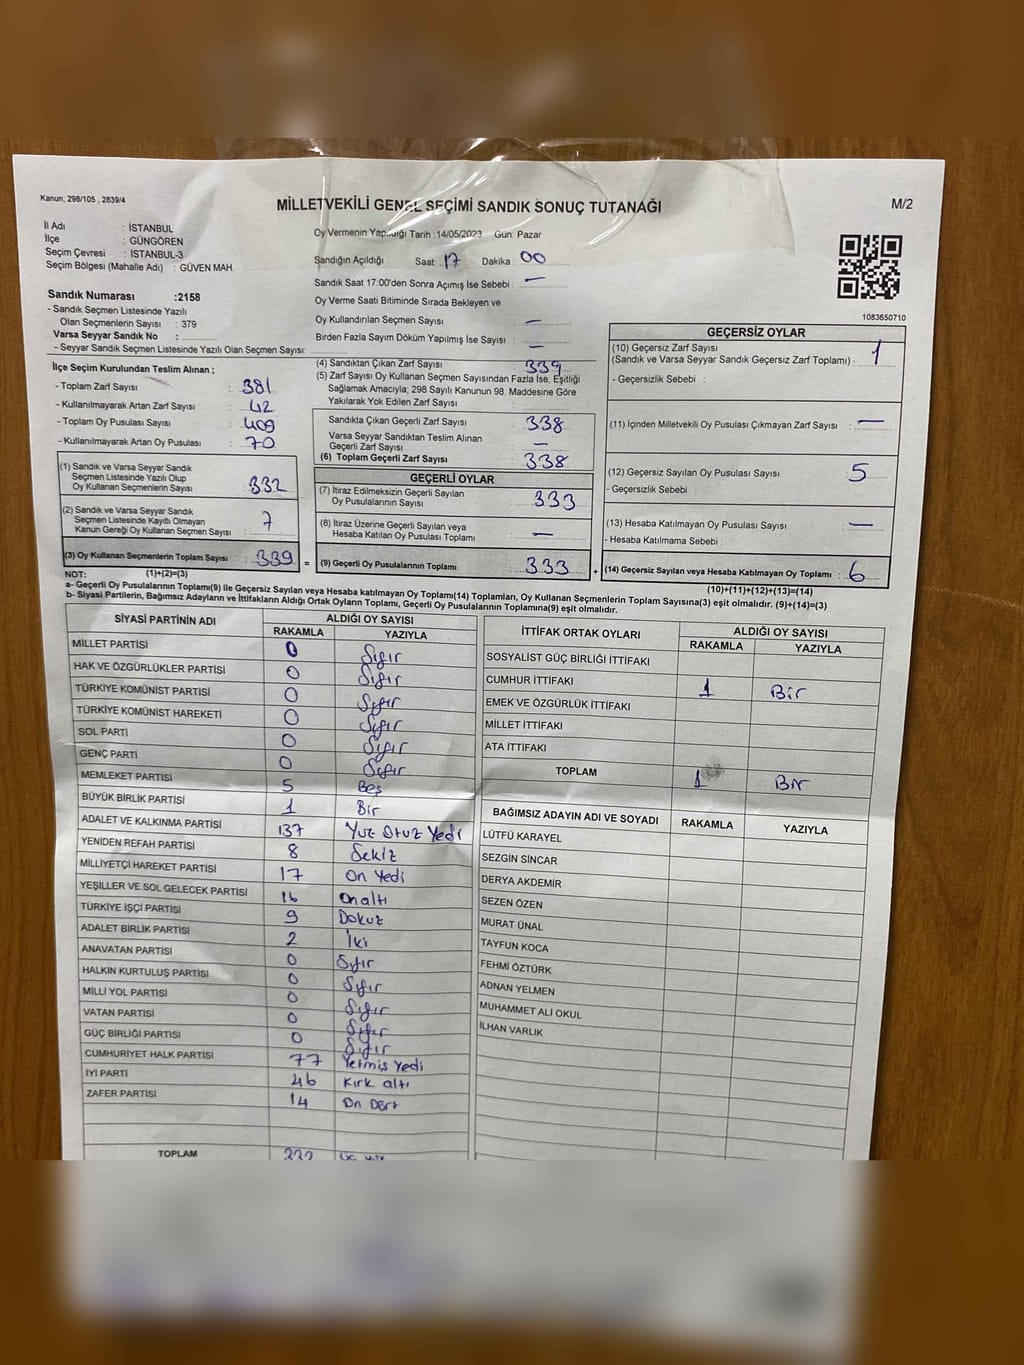 Kanun: 298/105 , 2839/4
MİLLETVEKİLİ GENEL SEÇİMİ SANDIK SONUÇ TUTANAĞI
M/2
İl Adı : İSTANBUL
İlçe : GÜNGÖREN
Seçim Çevresi : İSTANBUL-3
Seçim Bölgesi (Mahalle Adı) : GÜVEN MAH.
Oy Vermenin Yapıldığı Tarih :14/05/2023 Gün: Pazar
Sandığın Açıldığı Saat : 17 Dakika : 00
Sandık Saat 17:00'den Sonra Açımış İse Sebebi : —
Oy Verme Saati Bitiminde Sırada Bekleyen ve
Oy Kullandırılan Seçmen Sayısı : —
Birden Fazla Sayım Döküm Yapılmış İse Sayısı : —
1083650710
Sandık Numarası :2158
- Sandık Seçmen Listesinde Yazılı
Olan Seçmenlerin Sayısı : 379
Varsa Seyyar Sandık No :
- Seyyar Sandık Seçmen Listesinde Yazılı Olan Seçmen Sayısı:
İlçe Seçim Kurulundan Teslim Alınan ;
- Toplam Zarf Sayısı : 381
- Kullanılmayarak Artan Zarf Sayısı : 42
- Toplam Oy Pusulası Sayısı : 409
- Kullanılmayarak Artan Oy Pusulası : 70
(1) Sandık ve Varsa Seyyar Sandık
Seçmen Listesinde Yazılı Olup
Oy Kullanan Seçmenlerin Sayısı : 332
(2) Sandık ve Varsa Seyyar Sandık
Seçmen Listesinde Kayıtlı Olmayan
Kanun Gereği Oy Kullanan Seçmen Sayısı : 7
(3) Oy Kullanan Seçmenlerin Toplam Sayısı : 339
(4) Sandıktan Çıkan Zarf Sayısı : 339
(5) Zarf Sayısı Oy Kullanan Seçmen Sayısından Fazla İse, Eşitliği
Sağlamak Amacıyla; 298 Sayılı Kanunun 98. Maddesine Göre
Yakılarak Yok Edilen Zarf Sayısı :
Sandıkta Çıkan Geçerli Zarf Sayısı : 338
Varsa Seyyar Sandıktan Teslim Alınan
Geçerli Zarf Sayısı : —
(6) Toplam Geçerli Zarf Sayısı : 338
GEÇERLİ OYLAR
(7) İtiraz Edilmeksizin Geçerli Sayılan
Oy Pusulalarının Sayısı : 333
(8) İtiraz Üzerine Geçerli Sayılan veya
Hesaba Katılan Oy Pusulası Toplamı : —
= (9) Geçerli Oy Pusulalarının Toplamı : 333 +
GEÇERSİZ OYLAR
(10) Geçersiz Zarf Sayısı
(Sandık ve Varsa Seyyar Sandık Geçersiz Zarf Toplamı) : 1
- Geçersizlik Sebebi :
(11) İçinden Milletvekili Oy Pusulası Çıkmayan Zarf Sayısı : —
(12) Geçersiz Sayılan Oy Pusulası Sayısı : 5
- Geçersizlik Sebebi :
(13) Hesaba Katılmayan Oy Pusulası Sayısı : —
- Hesaba Katılmama Sebebi :
(14) Geçersiz Sayılan veya Hesaba Katılmayan Oy Toplamı : 6
NOT: (1)+(2)=(3)
(10)+(11)+(12)+(13)=(14)
a- Geçerli Oy Pusulalarının Toplamı(9) ile Geçersiz Sayılan veya Hesaba Katılmayan Oy Toplamı(14) Toplamları, Oy Kullanan Seçmenlerin Toplam Sayısına(3) eşit olmalıdır. (9)+(14)=(3)
b- Siyasi Partilerin, Bağımsız Adayların ve İttifakların Aldığı Ortak Oyların Toplamı, Geçerli Oy Pusulalarının Toplamına(9) eşit olmalıdır.
SİYASİ PARTİNİN ADI ALDIĞI OY SAYISI
RAKAMLA YAZIYLA
MİLLET PARTİSİ 0 Sıfır
HAK VE ÖZGÜRLÜKLER PARTİSİ 0 Sıfır
TÜRKİYE KOMÜNİST PARTİSİ 0 Sıfır
TÜRKİYE KOMÜNİST HAREKETİ 0 Sıfır
SOL PARTİ 0 Sıfır
GENÇ PARTİ 0 Sıfır
MEMLEKET PARTİSİ 5 Beş
BÜYÜK BİRLİK PARTİSİ 1 Bir
ADALET VE KALKINMA PARTİSİ 137 Yüz Otuz Yedi
YENİDEN REFAH PARTİSİ 8 Sekiz
MİLLİYETÇİ HAREKET PARTİSİ 17 On Yedi
YEŞİLLER VE SOL GELECEK PARTİSİ 16 On altı
TÜRKİYE İŞÇİ PARTİSİ 9 Dokuz
ADALET BİRLİK PARTİSİ 2 İki
ANAVATAN PARTİSİ 0 Sıfır
HALKIN KURTULUŞ PARTİSİ 0 Sıfır
MİLLİ YOL PARTİSİ 0 Sıfır
VATAN PARTİSİ 0 Sıfır
GÜÇ BİRLİĞİ PARTİSİ 0 Sıfır
CUMHURİYET HALK PARTİSİ 77 Yetmiş Yedi
İYİ PARTİ 46 Kırk altı
ZAFER PARTİSİ 14 On Dört
TOPLAM
İTTİFAK ORTAK OYLARI ALDIĞI OY SAYISI
RAKAMLA YAZIYLA
SOSYALİST GÜÇ BİRLİĞİ İTTİFAKI
CUMHUR İTTİFAKI 1 Bir
EMEK VE ÖZGÜRLÜK İTTİFAKI
MİLLET İTTİFAKI
ATA İTTİFAKI
TOPLAM 1 Bir
BAĞIMSIZ ADAYIN ADI VE SOYADI RAKAMLA YAZIYLA
LÜTFÜ KARAYEL
SEZGİN SİNCAR
DERYA AKDEMİR
SEZEN ÖZEN
MURAT ÜNAL
TAYFUN KOCA
FEHMİ ÖZTÜRK
ADNAN YELMEN
MUHAMMET ALİ OKUL
İLHAN VARLIK